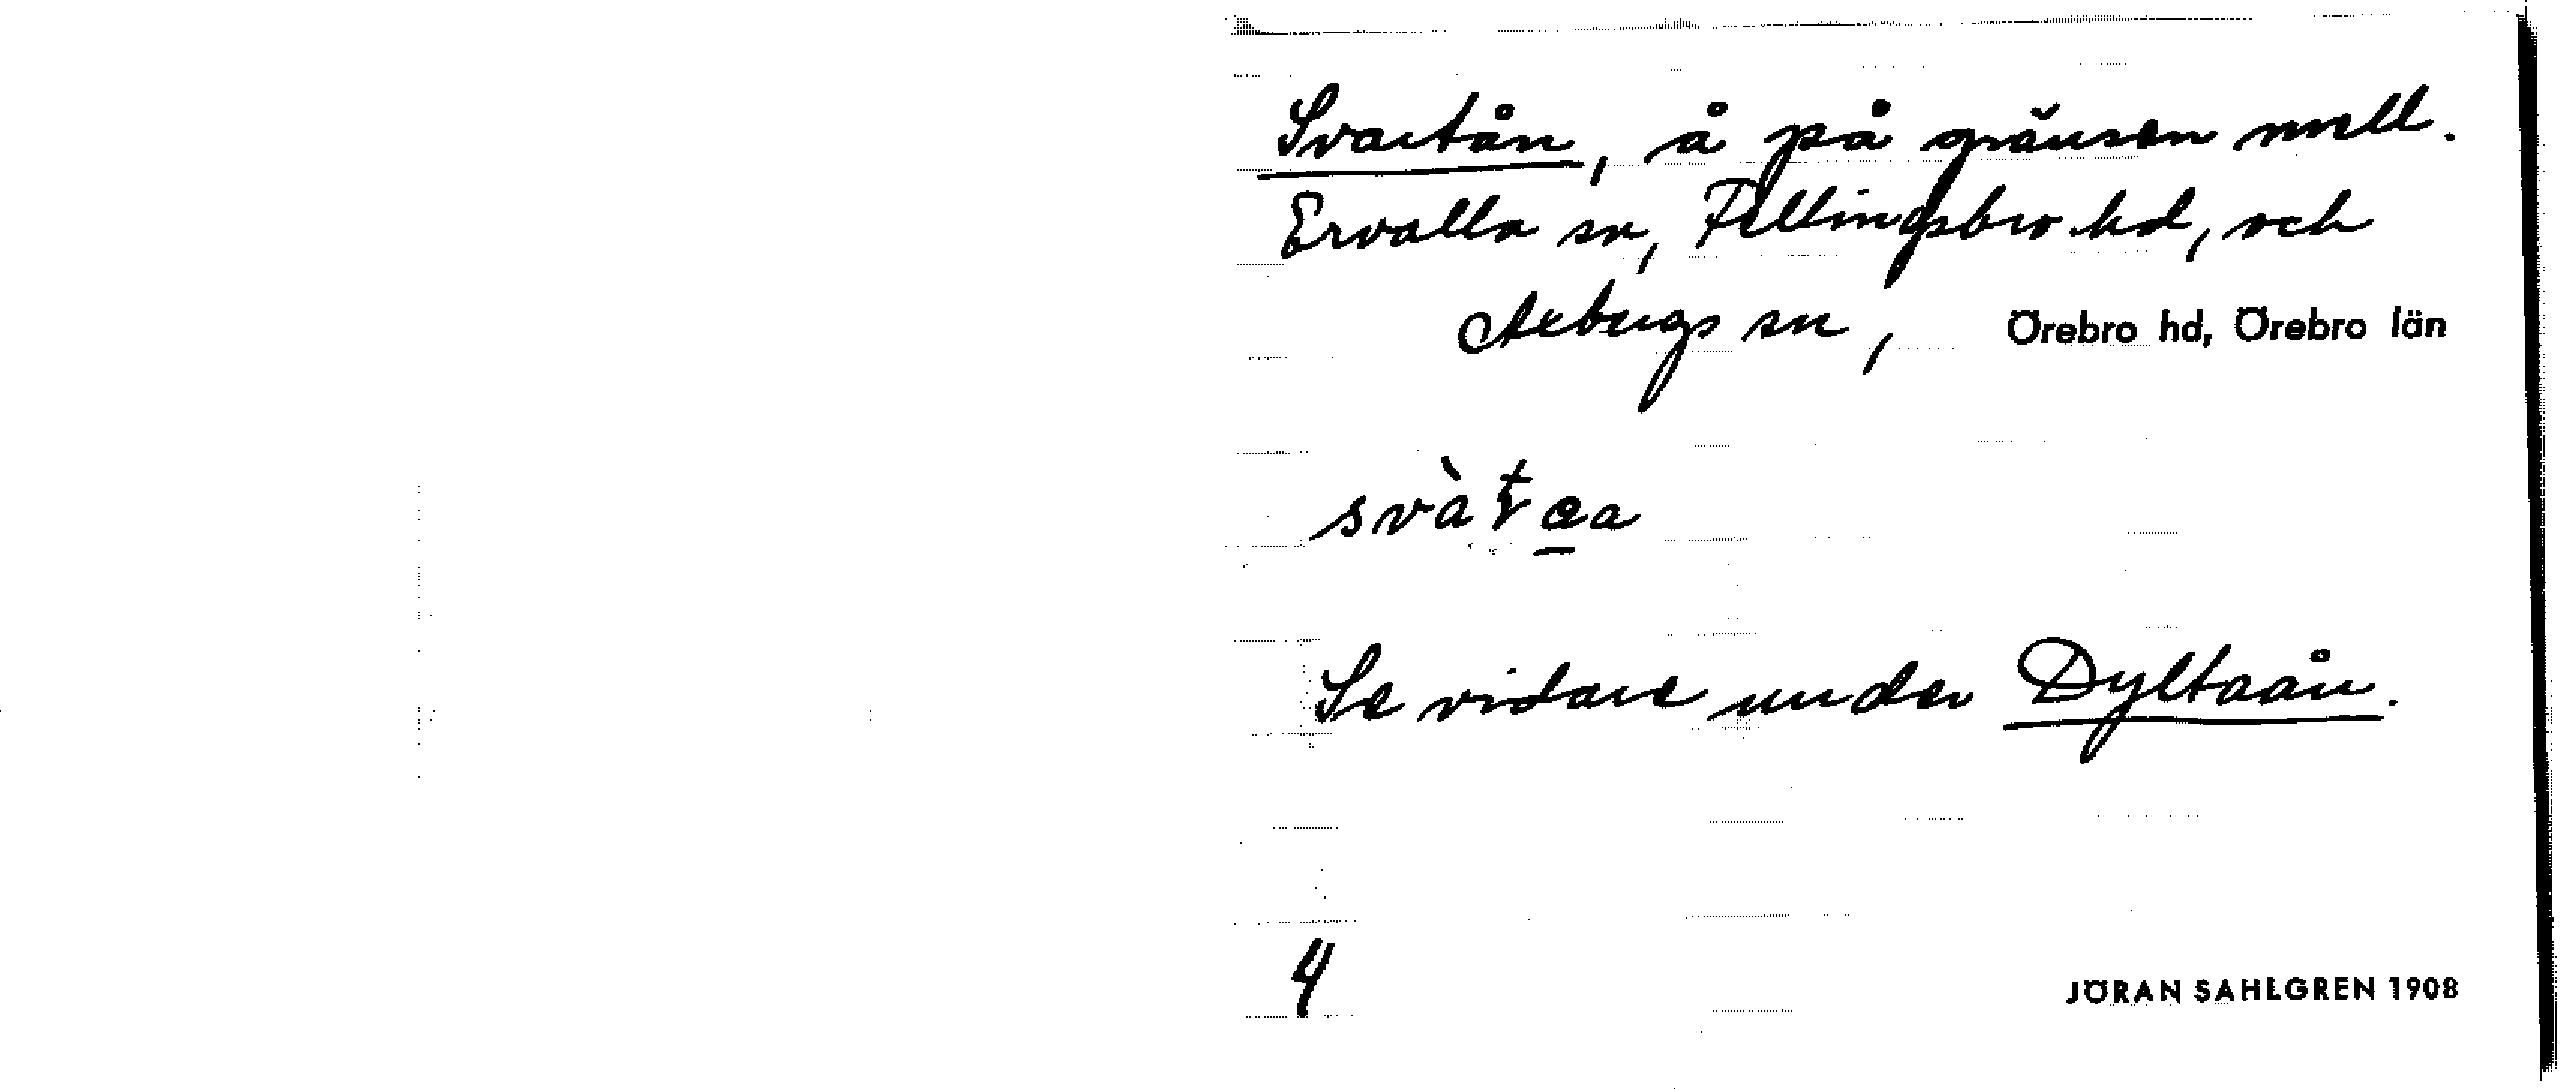 Svartån, å på gränsen mell.
Ervalla sn, Fellingsbro hd, och
Axbergs sn, Örebro hd, Örebro län
Se vidare under Dyltaån.
4
JÖRAN SAHLGREN 1908